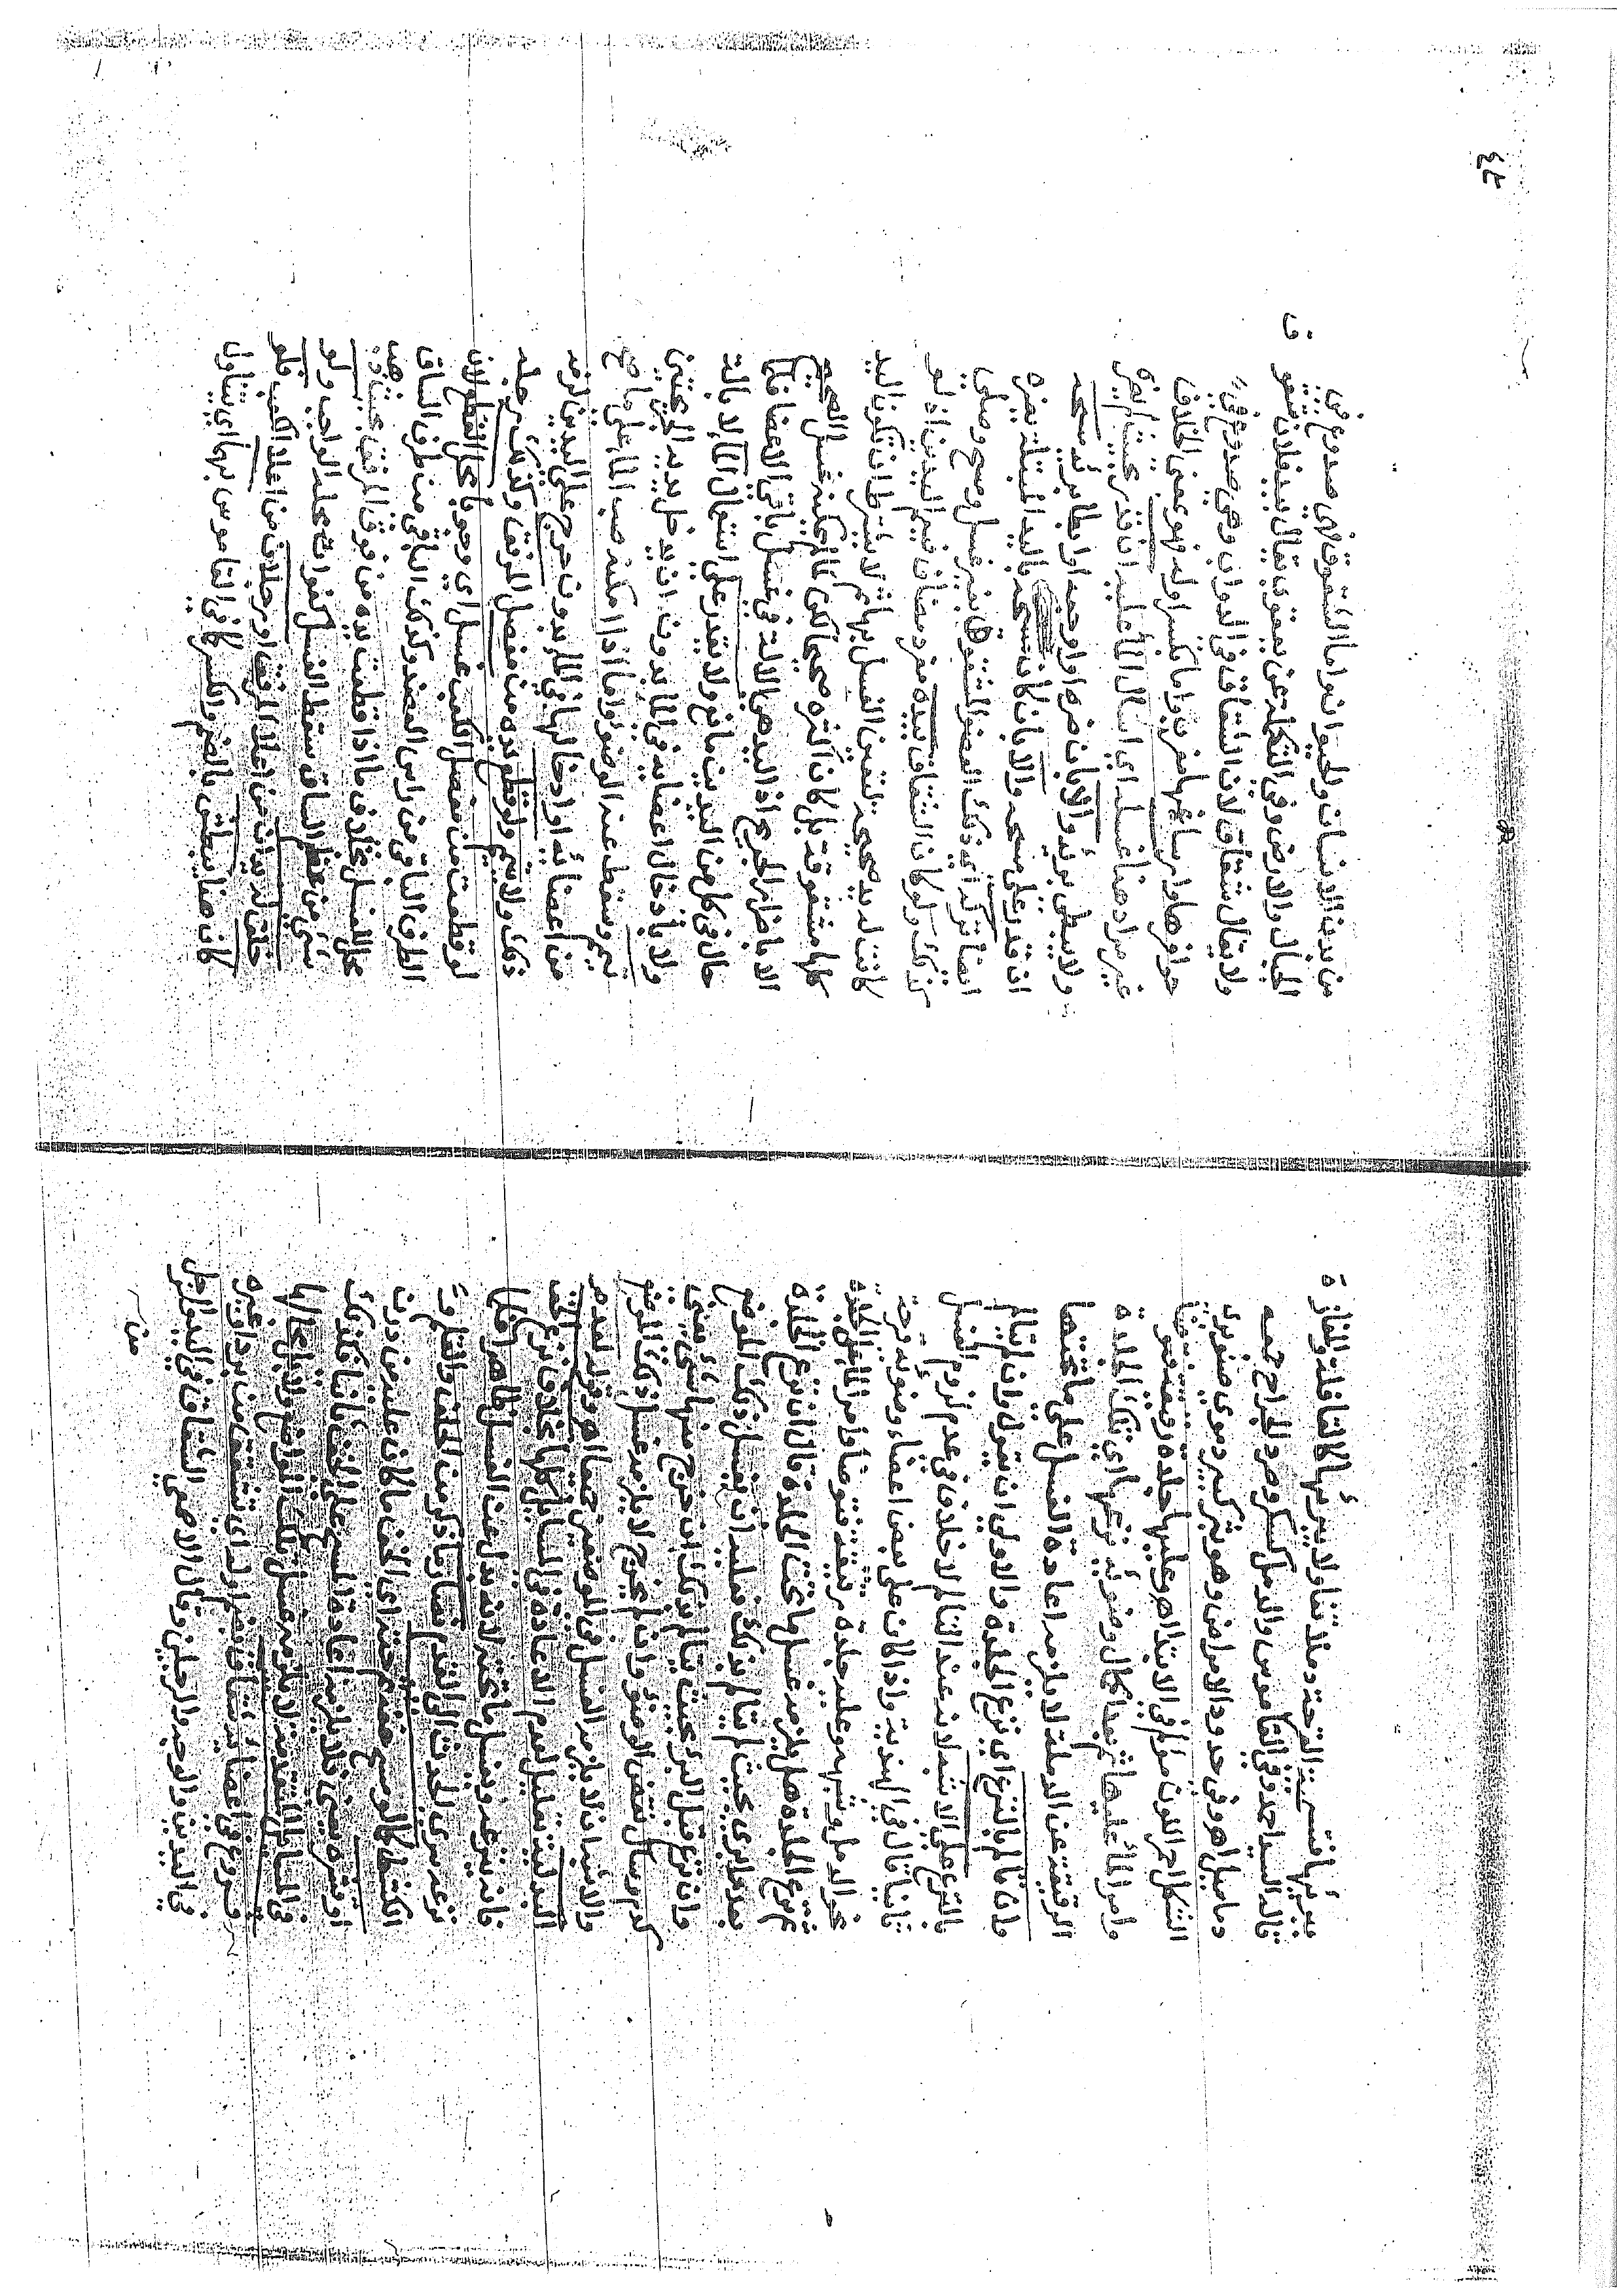 يبرئها فتسمية القرحة دملة تفاولا ببرئها كالقافلة والمفازة
قاله السيد احمد وفي القاموس والدمل كسكر وصرد الخراج جمعه
دماميل اهـ وفي حدود الامراض وهو بثر كبير دموي صنوبري
الشكل احمر اللون مؤلم في الابتداء اهـ وعليها جلدة رقيقة فتوضا
وامر الماء عليها ثم بعد اكمال وضوئه نزعها اي تلك الجلدة
الرقيقة عن الدملة لا يلزمه اعادة الغسل على ما تحتها
وان تالم بالنزع اي بنزع الجلدة والاولى ان يقول وان لم يتالم
بالنزع على الاشبه لانه عند التالم لا خلاف في عدم لزوم الغسل
ثانيا قال في الهندية واذا كان على بعض اعضاء وضوئه قرحة
نحو الدمل وشبهه وعليه جلدة رقيقة فتوضا وامر الماء على الجلدة
ثم نزع الجلدة هل يلزمه غسل ما تحت الجلدة قال ان نزع الجلدة
بعد ما برئ بحيث لم يتالم بذلك فعليه ان يغسل ذلك الموضع
وان نزع قبل البرء بحيث يتالم بذلك ان خرج منها شيء يعني
كدم وسال نقض الوضوء وان لم يخرج لا يلزمه غسل ذلك الموضع
والاشبه ان لا يلزمه الغسل في الموضعين جميعا اهـ وقوله لعدم
البدلية تعليل لعدم الاعادة في المسايل كلها بخلاف نزع الخف
فانه ينزعه ويغسل ما تحته لانه بدل عن الغسل ظاهرا فلما
نزعه سرى الحدث الى القدم فصار ما ذكر من الحلق والقلم و
الكشط كما لو مسح خفه ثم حته اي الخف ما كان عليه من درن
او قشره يعني فلا يلزمه اعادة المسح على الخف ثانيا فكذلك
في المسايل المتقدمة لا يلزمه غسل تلك المواضع ولا بل محالها
فروع في اعضائه شقاق بضم اوله اي تشقق من برد او غيره
في اليدين والوجه والرجلين وقال الاصمعي الشقاق في اليد والرجل
من
٤٢
من بدن الانسان والحيوان واما الشقوق فهي صدوع في
الجبال والارض وفي التكملة عن يعقوب يقال بيد فلان شقوق
ولا يقال شقاق لان الشقاق في الدواب وهي صدوع في
حوافرها وارساغها مغرب واما بكسر اوله فهو بمعنى الخلاف
غير مراد هنا غسله اي اسال الماء عليه ان قدر بحيث لم يضره
ولا يبطئ برئه والا بان ضره او اوجعه او ابطا برئه مسحه
ان قدر على مسحه والا بان كان مسحه باليد المبتلة يضره
ايضا تركه اي ذلك العضو المشقوق بغير غسل ومسح وصلى
كذلك ولو كان الشقاق بيده مفرد مضاف فيعم اليدين اذ لو
كانت له يد صحيحة لتعين الغسل بها ثم لا يشترط ان تكون اليد
كلها مشقوقة بل كان اكثره صحيحا لكن لم يمكنه غسل الصحيح
الا باضرار الجريح اذ اليد هي الالة في غسل باقي الاعضا فكما
حال في كل من اليدين مانع ولا يقدر على استعمال الماء لا بالة
ولا بادخال اعضايه في الماء بدون ان يدخل يديه المريضتين
تيمم وسقط عنه الوضوء واما اذا امكنه صب الماء على ما صح
من اعضائه او ادخالها في الماء بدون حرج على اليدين لزمه
ذلك ولا تيمم ولو قطع يده من مفصل المرفق وكذلك رجله
لو قطعت من مفصل الكعب غسل اي وجوبا محل القطع لان
الطرف الباقي من راس العضد وكذلك الباقي من طرف الساق
محل للغسل بخلاف ما اذا قطعت يده من فوق المرفق بحيث
شيء من عظم الساق سقط الغسل لفوات محله الواجب ولو
خلق له يدان من اعلا المرفق او رجلان من اعلا الكعب فلو
كان هنا يبطش بالضم والكسر كما في القاموس بهما اي يتناول